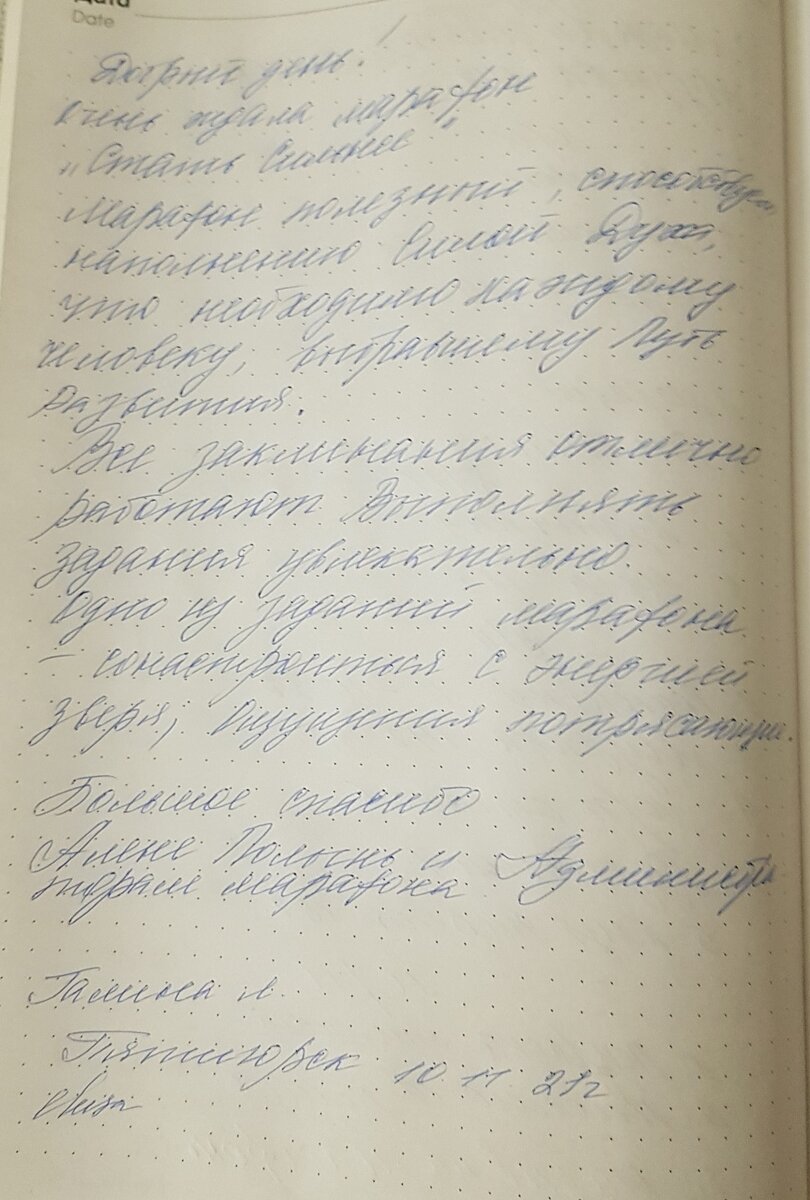 Дата
Date
Добрый день!
Очень ждала марафон
"Стать Сильнее"
Марафон полезный, способствует
наполнению Силой Духа,
что необходимо каждому
человеку, выбравшему Путь
Развития.
Все заклинания отлично
работают. Выполнять
задания увлекательно.
Одно из заданий марафона
- сонастроиться с энергией
зверя, ощущения потрясающие.
Большое спасибо
Алене Полынь и Администра
торам марафона
Галина Л.
Пятигорск 10 11 21г